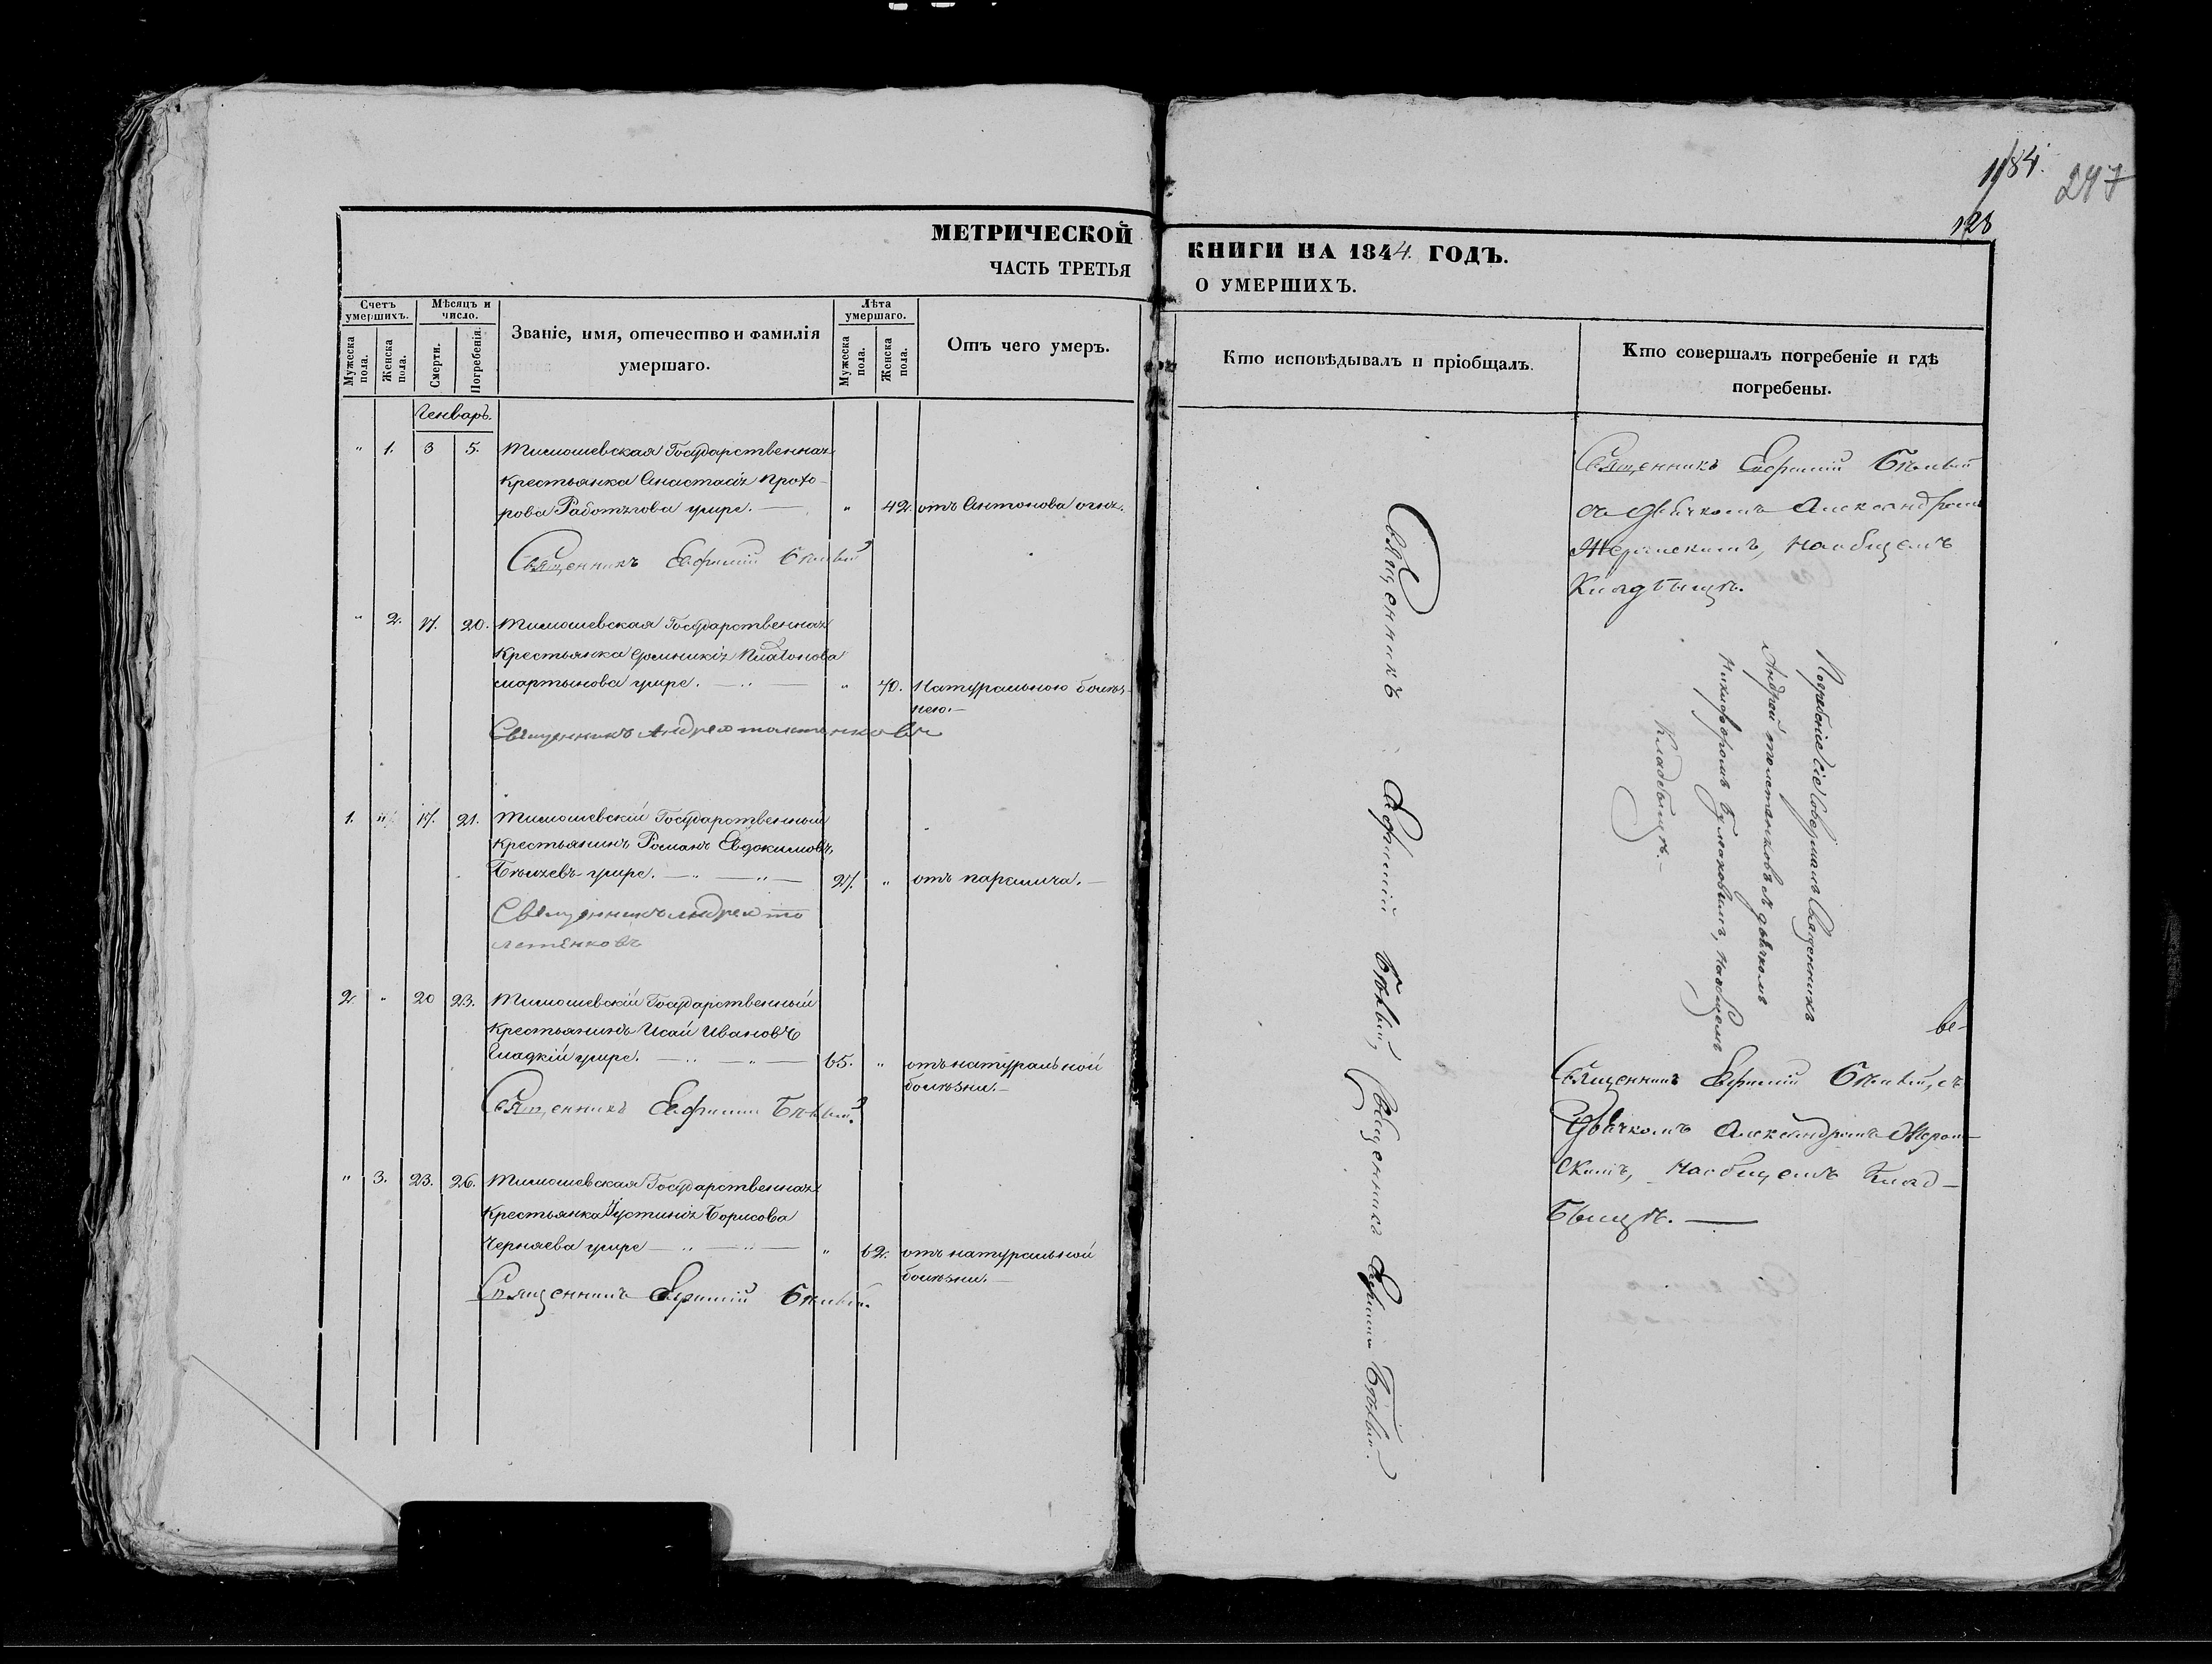 1184.
247
128
МЕТРИЧЕСКОЙ
ЧАСТЬ ТРЕТЬЯ
Счетъ умершихъ.
Мужеска пола.
Женска пола.
Мѣсяцъ и число.
Смерти.
Погребенія.
Званіе, имя, отечество и фамилія
умершаго.
Лѣта умершаго.
Мужеска пола.
Женска пола.
Отъ чего умеръ.
Генварь.
" 1. 3 5. Тимошевская Государственная
крестьянка Анастасія Прохо-
рова Работягова умре. — " 42. отъ Антонова огня.
Священникъ Евфимій Бѣлый
" 2. 17. 20. Тимошевская Государственная
крестьянка Домникія Платонова
Мартынова умре. — " — " 70. Натуральною болѣз-
нею.—
Священникъ Андрей
1. " 17. 21. Тимошевскій Государственный
крестьянинъ Романъ Евдокимовъ
умре. — " — " — 27. " отъ паралича.—
Священникъ Андрей То
лстенковъ
2. " 20 23. Тимошевскій Государственный
крестьянинъ Исай Ивановъ
Гладкій умре. — " — " — 65. " отъ натуральной
болѣзни.—
Священникъ Евфимій Бѣлый
" 3. 23. 26. Тимошевская Государственная
крестьянка Іустинія Борисова
Черняева умре — " — " — " 62. отъ натуральной
болѣзни.—
Священникъ Евфимій Бѣлый.
КНИГИ НА 1844. ГОДЪ.
О УМЕРШИХЪ.
Кто исповѣдывалъ и пріобщалъ.
Кто совершалъ погребеніе и гдѣ
погребены.
Священникъ Евфимій Бѣлый, Священникъ Евфимій Бѣлый.
Священникъ Евфимій Бѣлый
съ дьячкомъ Александромъ
на общемъ
кладбищѣ.
Погребеніе сіе совершалъ Священникъ
Андрей Толстенковъ съ дьячкомъ
Никифоромъ на общемъ
кладбищѣ.—
Священникъ Евфимій Бѣлый, съ
дьячкомъ Александромъ
скимъ, на общемъ клад-
бищѣ.—